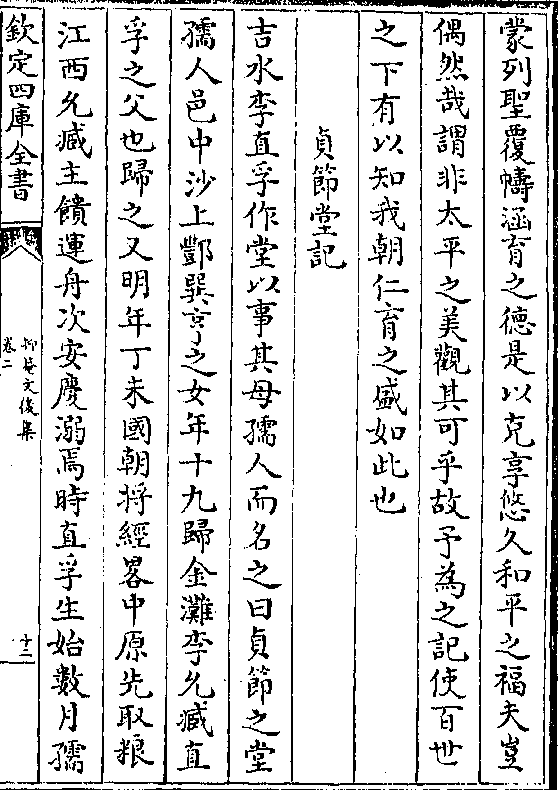 蒙列聖覆幬涵育之德是以克享悠久和平之福夫豈
偶然哉謂非太平之美觀其可乎故予為之記使百世
之下有以知我朝仁育之盛如此也
貞節堂記
吉水李直孚作堂以事其母孺人而名之曰貞節之堂
孺人邑中沙上酆巽亨之女年十九歸金灘李允臧直
孚之父也歸之又明年丁未國朝将經畧中原先取粮
江西允臧主饋運舟次安慶溺焉時直孚生始數月孺
欽定四庫全書
抑菴文後集
卷二
十三